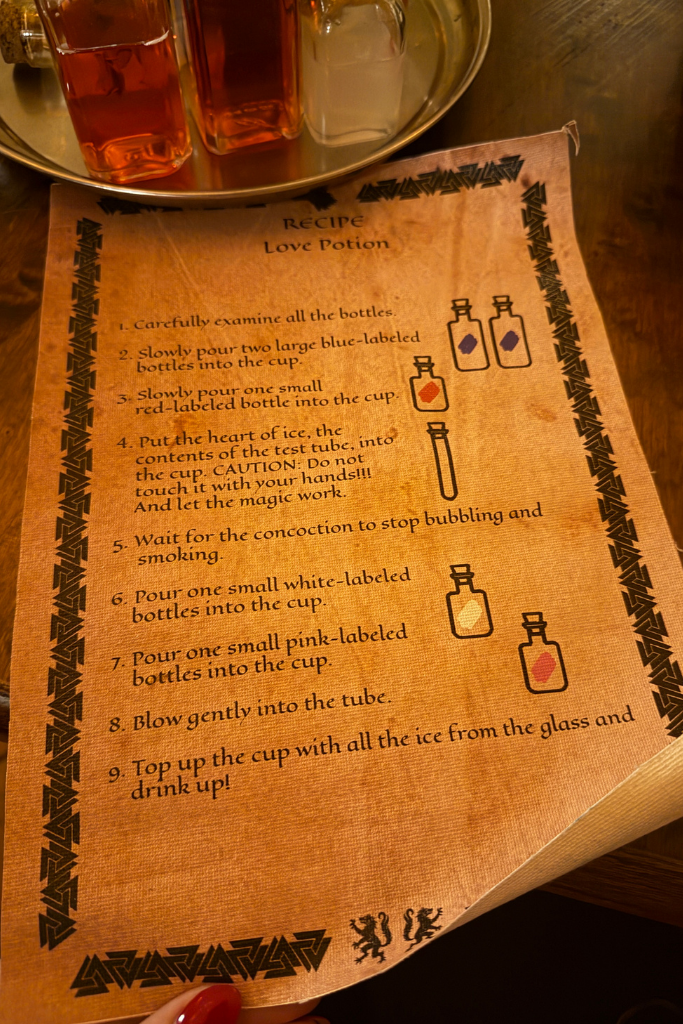 RECIPE
Love Potion
1. Carefully examine all the bottles.
2. Slowly pour two large blue-labeled
bottles into the cup.
3. Slowly pour one small
red-labeled bottle into the cup.
4. Put the heart of ice, the
contents of the test tube, into
the cup. CAUTION: Do not
touch it with your hands!!!
And let the magic work.
5. Wait for the concoction to stop bubbling and
smoking.
6. Pour one small white-labeled
bottles into the cup.
7. Pour one small pink-labeled
bottles into the cup.
8. Blow gently into the tube.
9. Top up the cup with all the ice from the glass and
drink up!